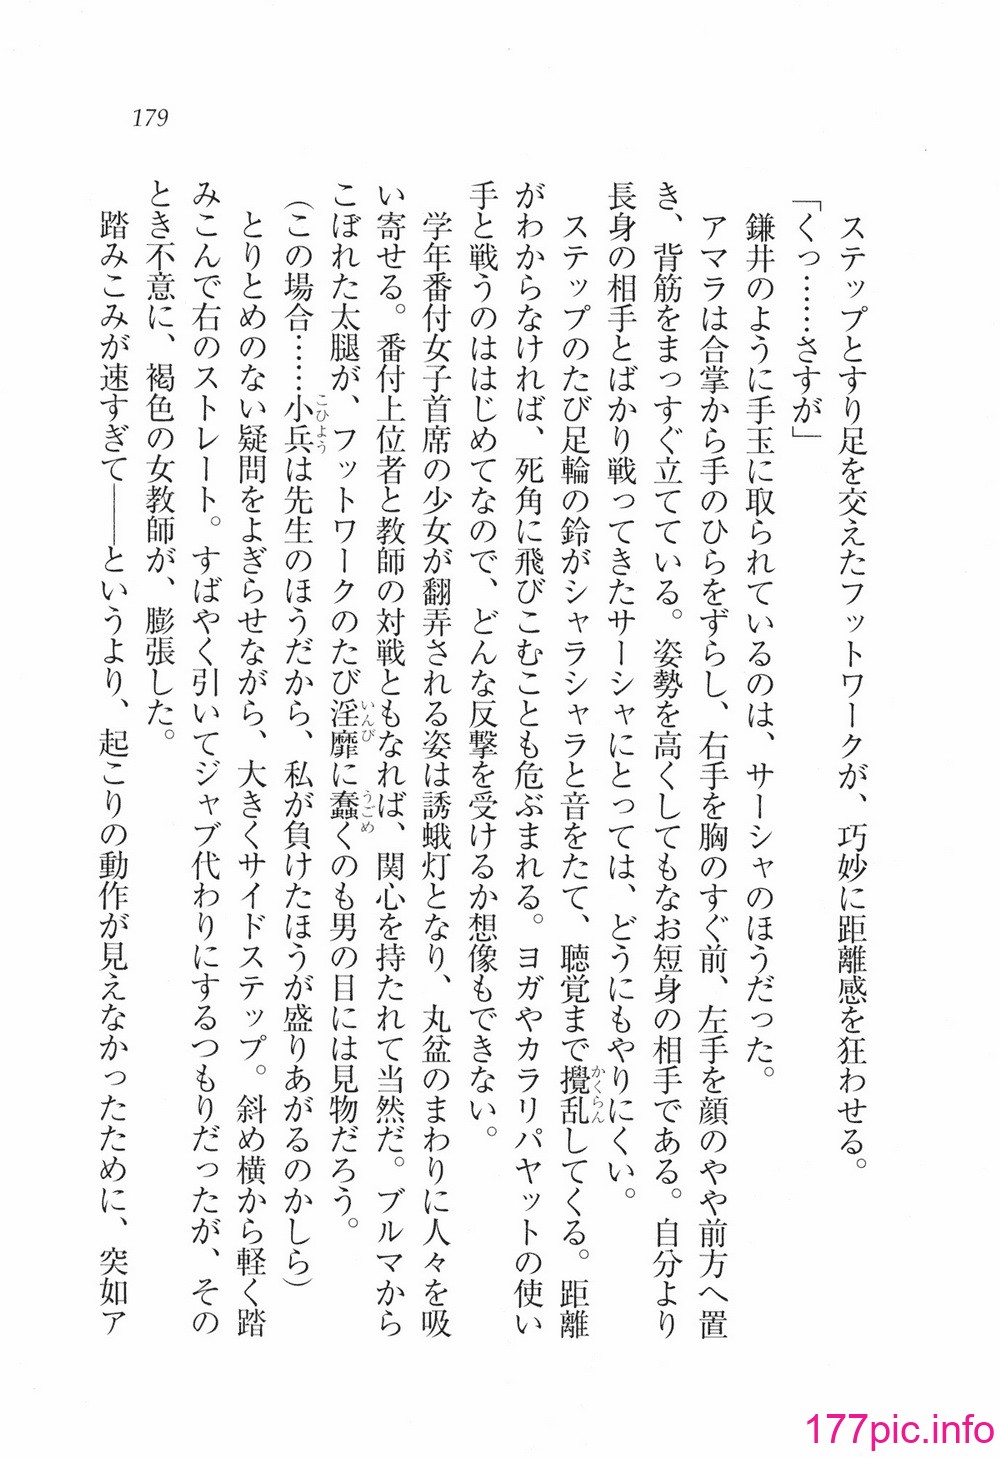 179
ステップとすり足を交えたフットワークが、巧妙に距離感を狂わせる。
「くっ……さすが」
鎌井のように手玉に取られているのは、サーシャのほうだった。
アマラは合掌から手のひらをずらし、右手を胸のすぐ前、左手を顔のやや前方へ置
き、背筋をまっすぐ立てている。姿勢を高くしてもなお短身の相手である。自分より
長身の相手とばかり戦ってきたサーシャにとっては、どうにもやりにくい。
ステップのたび足輪の鈴がシャラシャラと音をたて、聴覚まで攪乱してくる。距離
がわからなければ、死角に飛びこむことも危ぶまれる。ヨガやカラリパヤットの使い
手と戦うのははじめてなので、どんな反撃を受けるか想像もできない。
学年番付女子首席の少女が翻弄される姿は誘蛾灯となり、丸盆のまわりに人々を吸
い寄せる。番付上位者と教師の対戦ともなれば、関心を持たれて当然だ。ブルマから
こぼれた太腿が、フットワークのたび淫靡に蠢くのも男の目には見物だろう。
（この場合……小兵は先生のほうだから、私が負けたほうが盛りあがるのかしら）
とりとめのない疑問をよぎらせながら、大きくサイドステップ。斜め横から軽く踏
みこんで右のストレート。すばやく引いてジャブ代わりにするつもりだったが、その
とき不意に、褐色の女教師が、膨張した。
踏みこみが速すぎて――というより、起こりの動作が見えなかったために、突如ア
かくらん
いんび
うごめ
こひよう
177pic.info